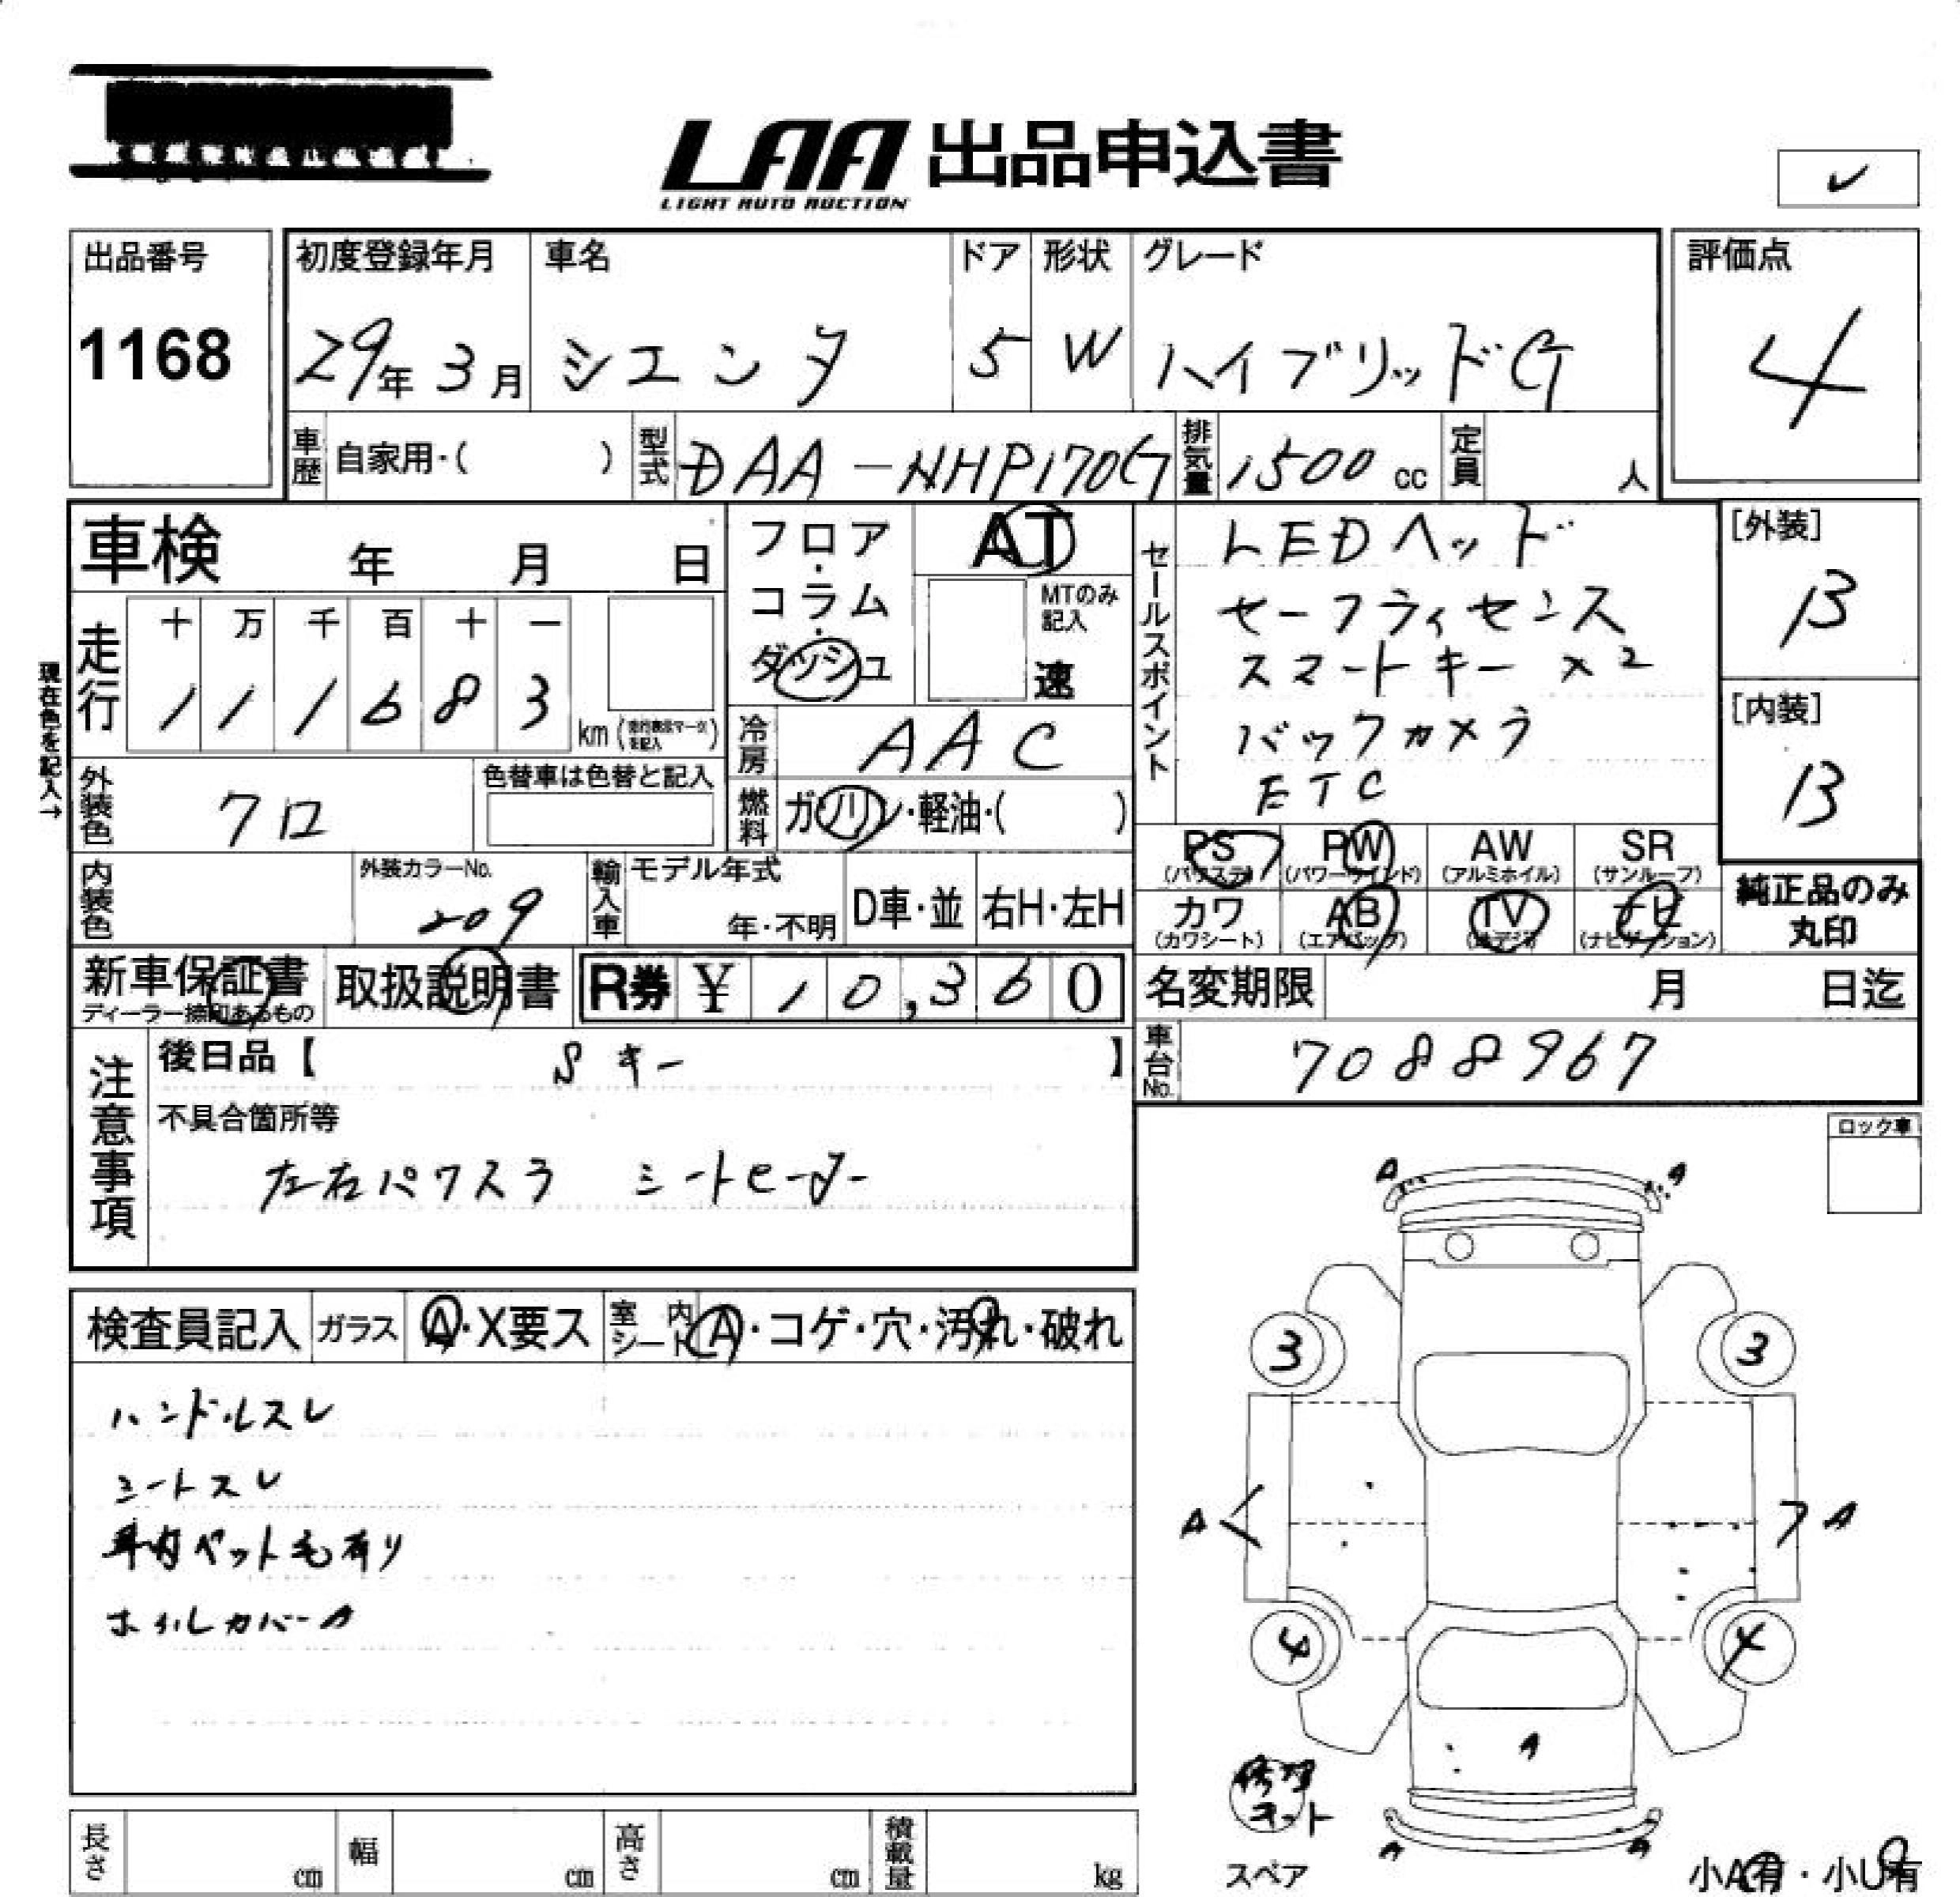 LAA 出品申込書
LIGHT AUTO AUCTION
✓
出品番号
1168
初度登録年月
29年 3月
車名
シエンタ
ドア
5
形状
W
グレード
ハイブリッドG
評価点
4
車歴 自家用・( )
型式 DAA-NHP170G
排気量 1500 cc
定員 人
車検 年 月 日
フロア・コラム・ダッシュ
AT
MTのみ記入
速
セールスポイント
LEDヘッド
セーフティセンス
スマートキー×2
バックカメラ
ETC
[外装]
B
[内装]
B
現在色を記入→
走行
十 万 千 百 十 一
1 1 1 6 8 3 km
冷房 AAC
外装色 クロ
色替車は色替と記入
燃料 ガソリン・軽油・( )
PS PW AW SR
(パワステ) (パワーウインド) (アルミホイル) (サンルーフ)
カワ AB TV ナビ
(カワシート) (エアバッグ) (ナビゲーション)
純正品のみ
丸印
内装色
外装カラーNo.
209
輸入車
モデル年式
年・不明
D車・並
右H・左H
新車保証書
ディーラー捺印あるもの
取扱説明書
R券 ¥ 10,360
名変期限 月 日迄
車台No. 7088967
注意事項
後日品【 Sキー 】
不具合箇所等
左右パワスラ シートヒーター
ロック車
検査員記入
ガラス A・X要ス
室内シート A・コゲ・穴・汚れ・破れ
ハンドルスレ
シートスレ
車内ペット毛有り
ホイルカバーA
A A
3 3
A A
4 4
A
修理
キット
A A
スペア
小A有・小U有
長さ cm
幅 cm
高さ cm
積載量 kg